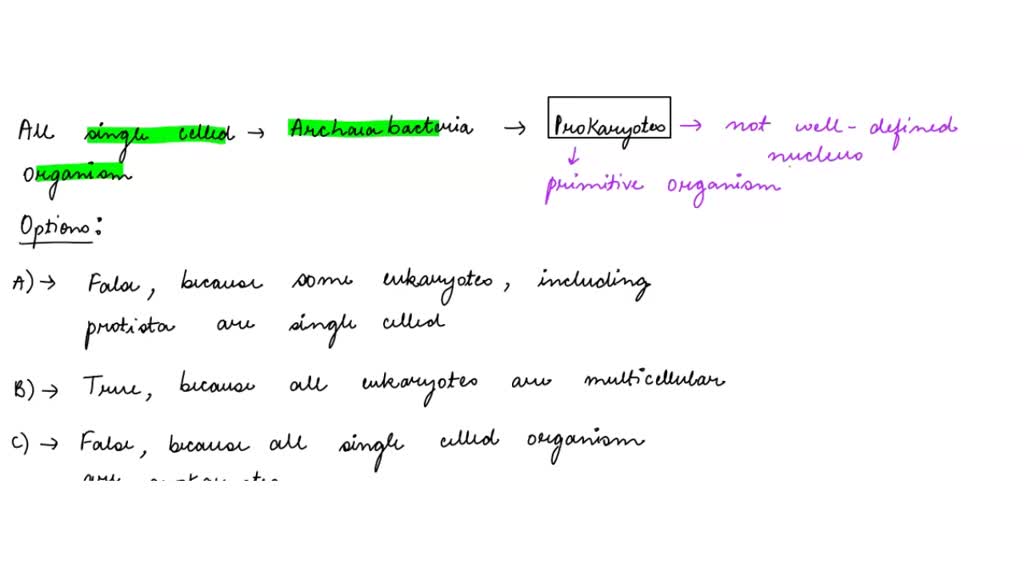 All single celled → Archaia bacteria → Prokaryotes → not well-defined
organism nucleus
↓
primitive organism
Options:
A) → False, because some eukaryotes, including
protista are single celled
B) → True, because all eukaryotes are multicellular
C) → False, because all single celled organism
are